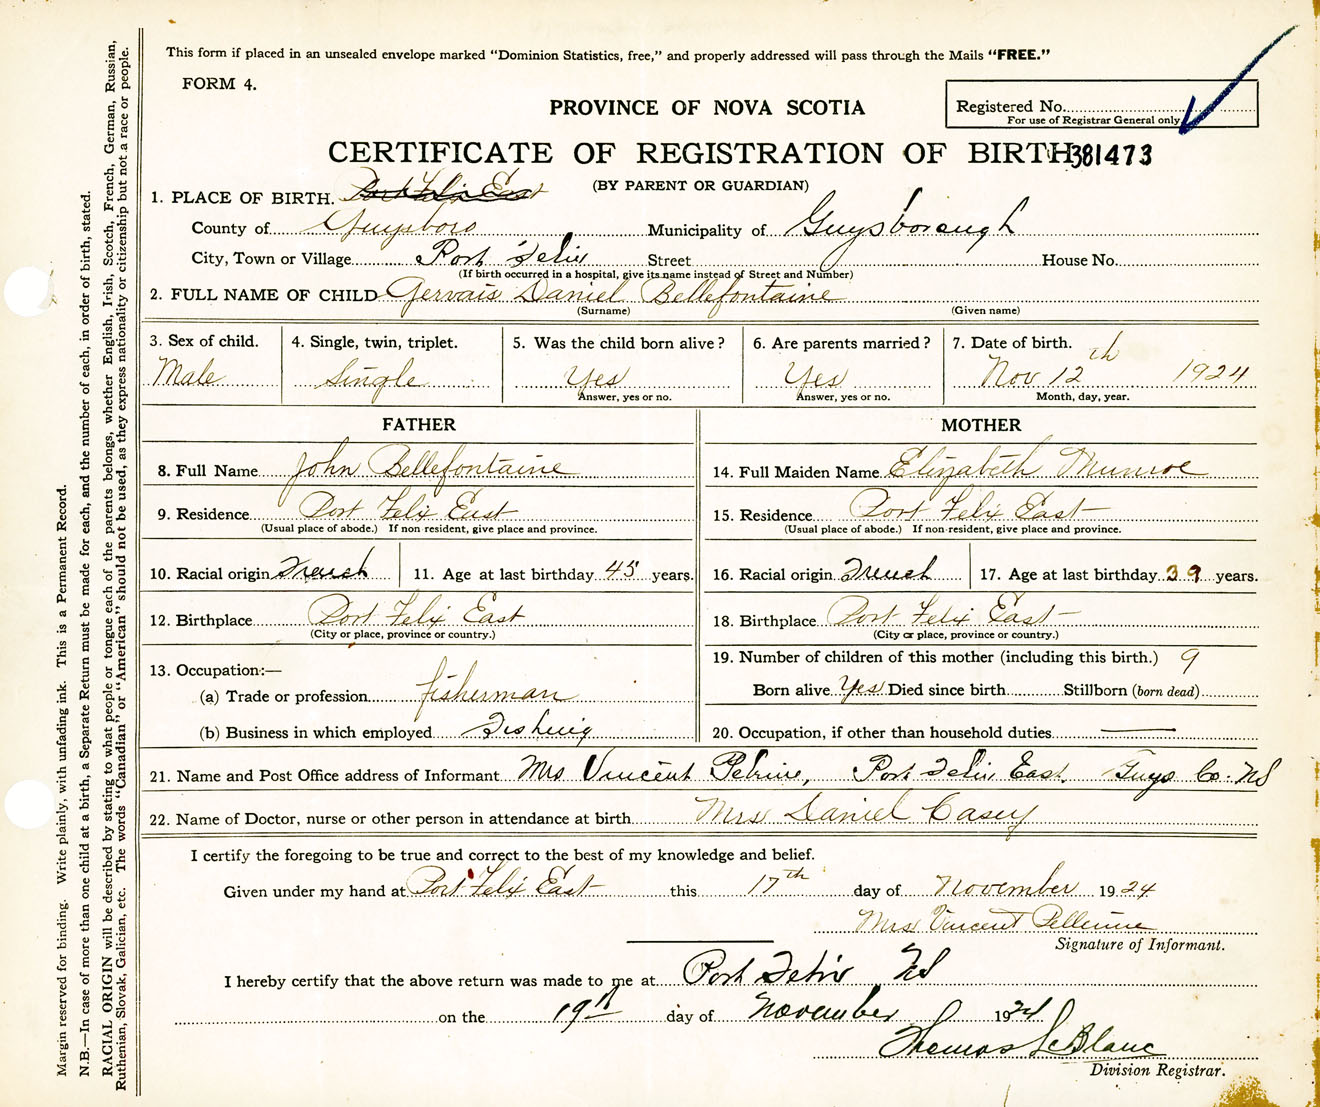 This form if placed in an unsealed envelope marked "Dominion Statistics, free," and properly addressed will pass through the Mails "FREE."
FORM 4.
PROVINCE OF NOVA SCOTIA
Registered No.
For use of Registrar General only
CERTIFICATE OF REGISTRATION OF BIRTH 381473
(BY PARENT OR GUARDIAN)
1. PLACE OF BIRTH. Port Felix East
County of Guysboro Municipality of Guysborough
City, Town or Village Port Felix Street House No.
(If birth occurred in a hospital, give its name instead of Street and Number)
2. FULL NAME OF CHILD Gervais Daniel Bellefontaine
(Surname) (Given name)
3. Sex of child. 4. Single, twin, triplet. 5. Was the child born alive? 6. Are parents married? 7. Date of birth.
Male Single Yes Yes Nov 12th 1924
Answer, yes or no. Answer, yes or no. Month, day, year.
FATHER MOTHER
8. Full Name John Bellefontaine 14. Full Maiden Name Elizabeth Munroe
9. Residence Port Felix East 15. Residence Port Felix East
(Usual place of abode.) If non-resident, give place and province. (Usual place of abode.) If non-resident, give place and province.
10. Racial origin French 11. Age at last birthday 45 years. 16. Racial origin French 17. Age at last birthday 39 years.
12. Birthplace Port Felix East 18. Birthplace Port Felix East
(City or place, province or country.) (City or place, province or country.)
13. Occupation:— 19. Number of children of this mother (including this birth.) 9
(a) Trade or profession fisherman Born alive Yes Died since birth Stillborn (born dead)
(b) Business in which employed Fishing 20. Occupation, if other than household duties —
21. Name and Post Office address of Informant Mrs Vincent Pelrine, Port Felix East, Guys Co. NS
22. Name of Doctor, nurse or other person in attendance at birth Mrs Daniel Casey
I certify the foregoing to be true and correct to the best of my knowledge and belief.
Given under my hand at Port Felix East this 17th day of November 1924
Mrs Vincent Pellerine
Signature of Informant.
I hereby certify that the above return was made to me at Port Felix NS
on the 19th day of November 1924
Thomas LeBlanc
Division Registrar.
Margin reserved for binding. Write plainly, with unfading ink. This is a Permanent Record.
N.B.—In case of more than one child at a birth, a Separate Return must be made for each, and the number of each, in order of birth, stated.
RACIAL ORIGIN will be described by stating to what people or tongue each of the parents belongs, whether English, Irish, Scotch, French, German, Russian,
Ruthenian, Slovak, Galician, etc. The words "Canadian" or "American" should not be used, as they express nationality or citizenship but not a race or people.